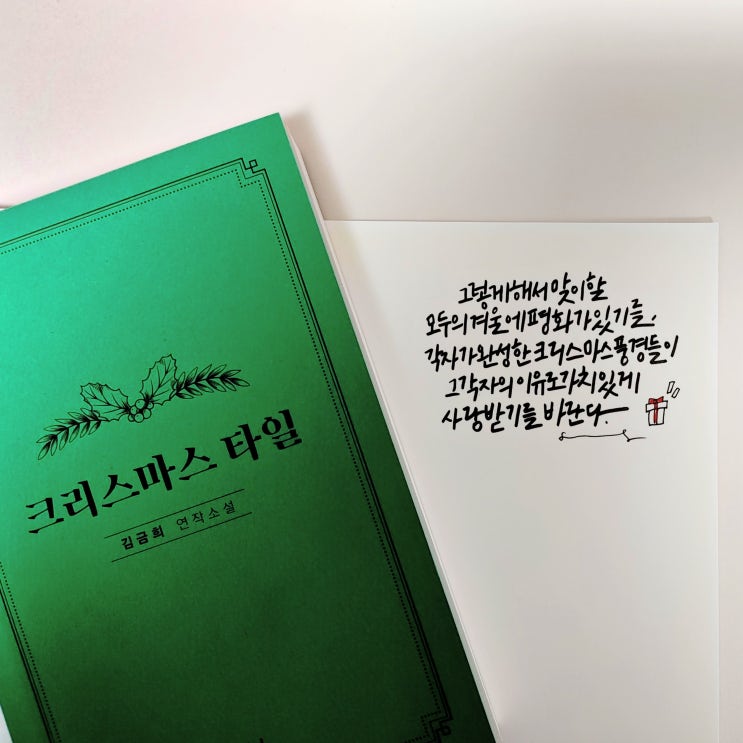 크리스마스 타일
김금희 연작소설
그렇게 해서 맞이할
모두의 겨울에 평화가 있기를,
각자가 완성한 크리스마스 풍경들이
그 각자의 이유로 가치있게
사랑받기를 바란다.